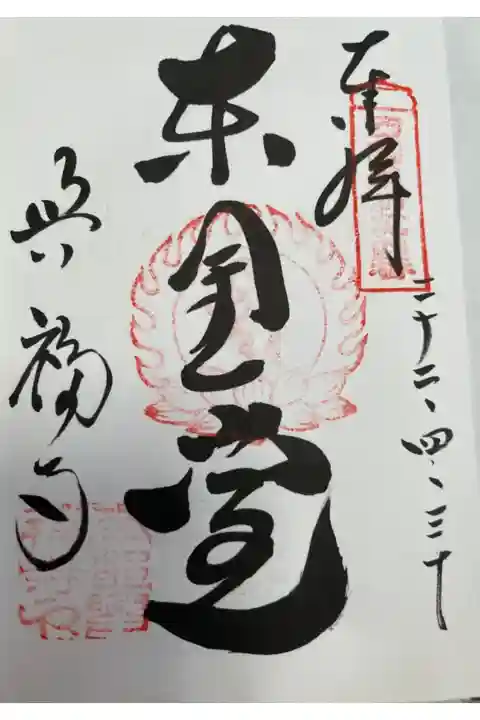 奉拝
二十二、四、三十
東金堂
興福寺